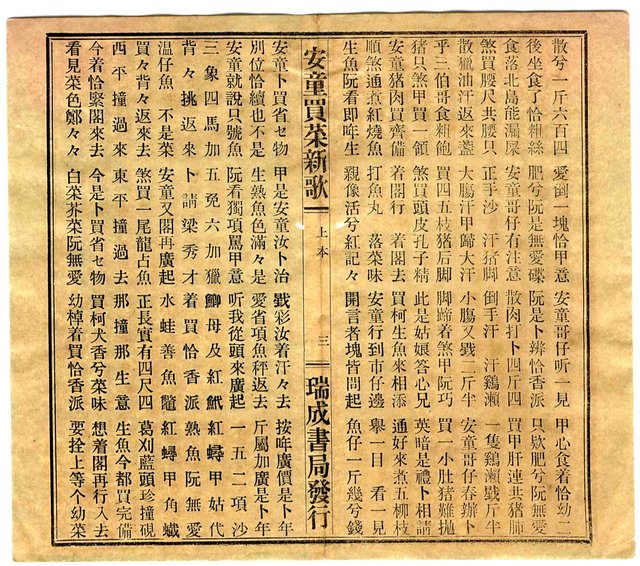 散兮一斤六百四　愛倒一塊恰甲意　安童哥仔听一見　甲心食着恰幼二
後坐食了恰粗絲　肥兮阮是無愛碟　阮是卜辨恰香派　只欵肥兮阮無愛
食落北島能漏屎　安童哥仔有注意　散肉打卜四斤四　買甲肝連共猪肺
煞買腰尺共腰只　正手沙　汗猪脚　倒手汗　汗鷄瀨　一隻鷄瀨戥斤半
散獵油汗返來盏　大腸汗甲歸大汗　小腸又戥二斤半　安童哥仔春辦卜
乎三伯哥食粗飽　買四五枝猪后脚　脚蹄着煞甲阮巧　買一小肚猪難抛
猪只煞甲買一領　煞買頭皮孔子精　此是姑娘答心兄　英暗是禮卜相請
安童猪肉買齊備　着閣行　着閣去　買柯生魚來相添　通好來煮五柳枝
順煞通煮紅燒魚　打魚丸　落菜味　安童行到市仔邊　舉一目　看一見
生魚阮看即哖生　親像活兮紅記々　開言者塊皆問起　魚仔一斤幾兮錢
安童買菜新歌　上本　三　瑞成書局發行
安童卜買省セ物　甲是安童汝卜治　戥彩汝着汗々去　按哖廣價是卜年
別位恰續也不是　生熟魚色滿々是　愛省項魚秤返去　斤屬加廣是卜年
安童就説只號魚　阮看獨項罵甲意　听我從頭來廣起　一五二項沙
三象四馬加五兔六加獵　鯽母及紅魠　紅蟳甲姑代
背々挑返來　卜請梁秀才　着買恰香派　熟魚阮無愛
温仔魚　不是菜　安童又閣再廣起　水蛙善魚鼈　紅蟳甲角蠘
買々背々返來去　煞買一尾龍占魚　正長實有四尺四　葛刈藍頭珍撞硯
西平撞過來　東平撞過去　那撞那生意　生魚今都買完備
今着恰緊閣來去　今是卜買省セ物　買柯大香兮菜味　想着閣再行入去
看見菜色鄭々々　白菜芥菜阮無愛　幼棹着買恰香派　要拴上等个幼菜